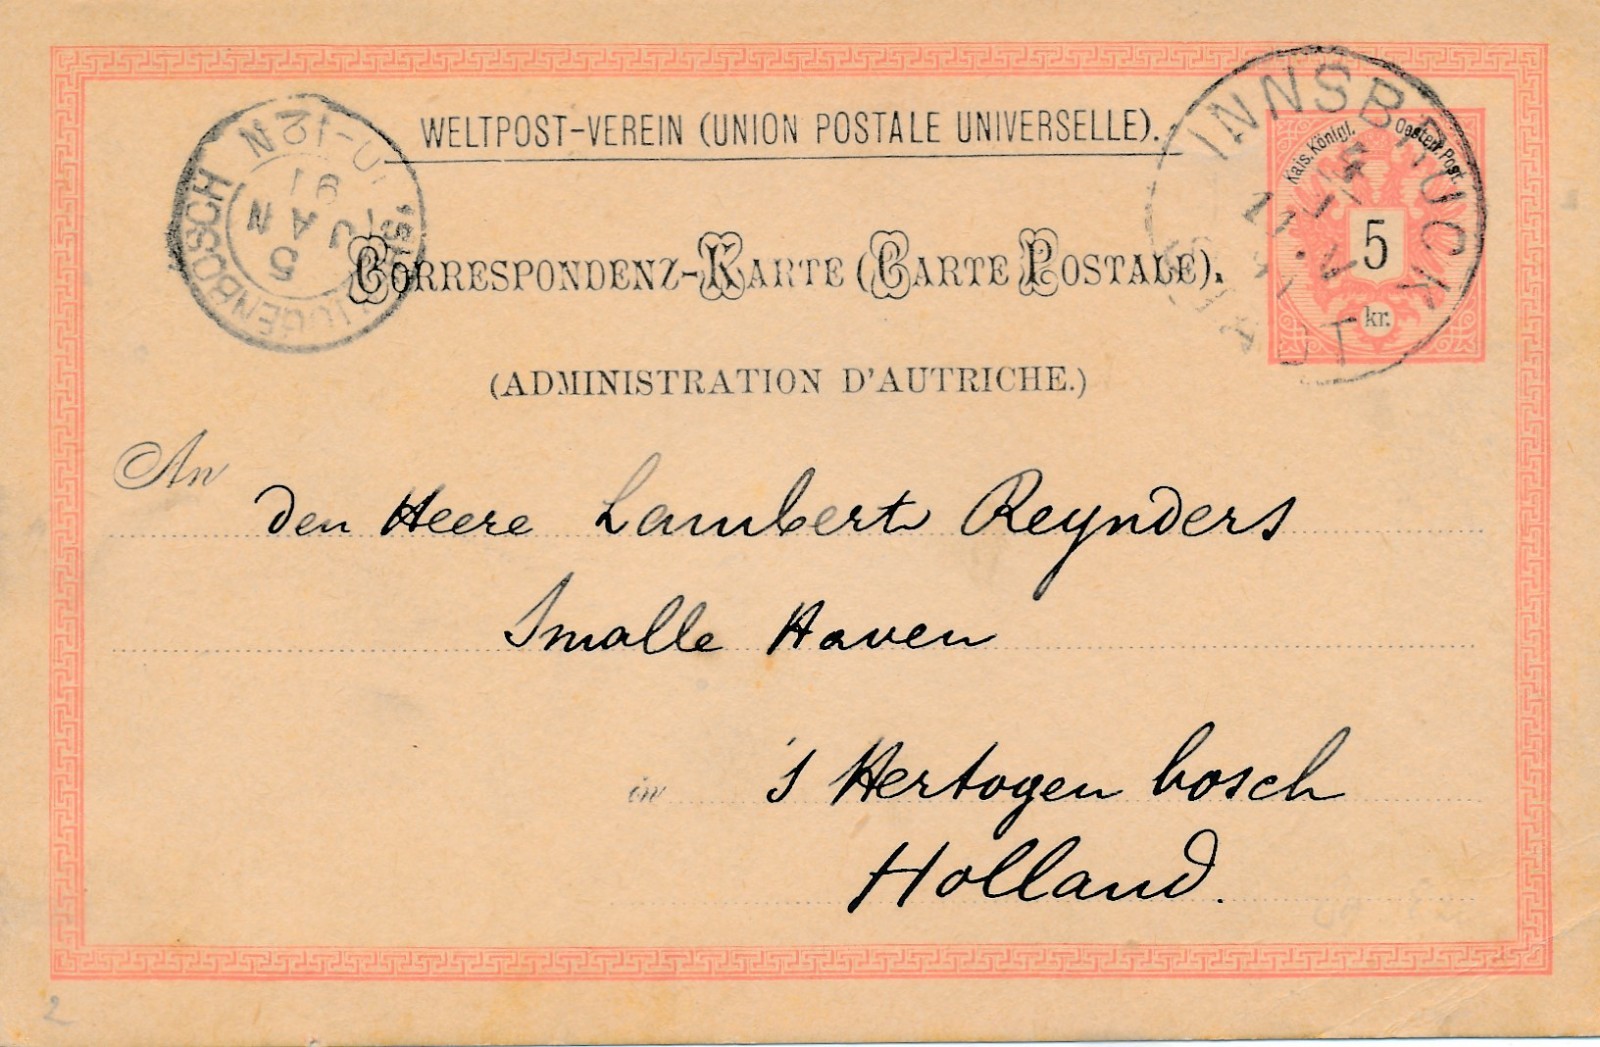 WELTPOST-VEREIN (UNION POSTALE UNIVERSELLE).
CORRESPONDENZ-KARTE (CARTE POSTALE).
(ADMINISTRATION D'AUTRICHE.)
Kais. Königl. Oesterr. Post.
5
kr.
INNSBRUCK
STADT
'S HERTOGENBOSCH
5
JAN
91
-12N
An
den Heere Lambert Reynders
Smalle Haven
in 's Hertogen bosch
Holland.
2